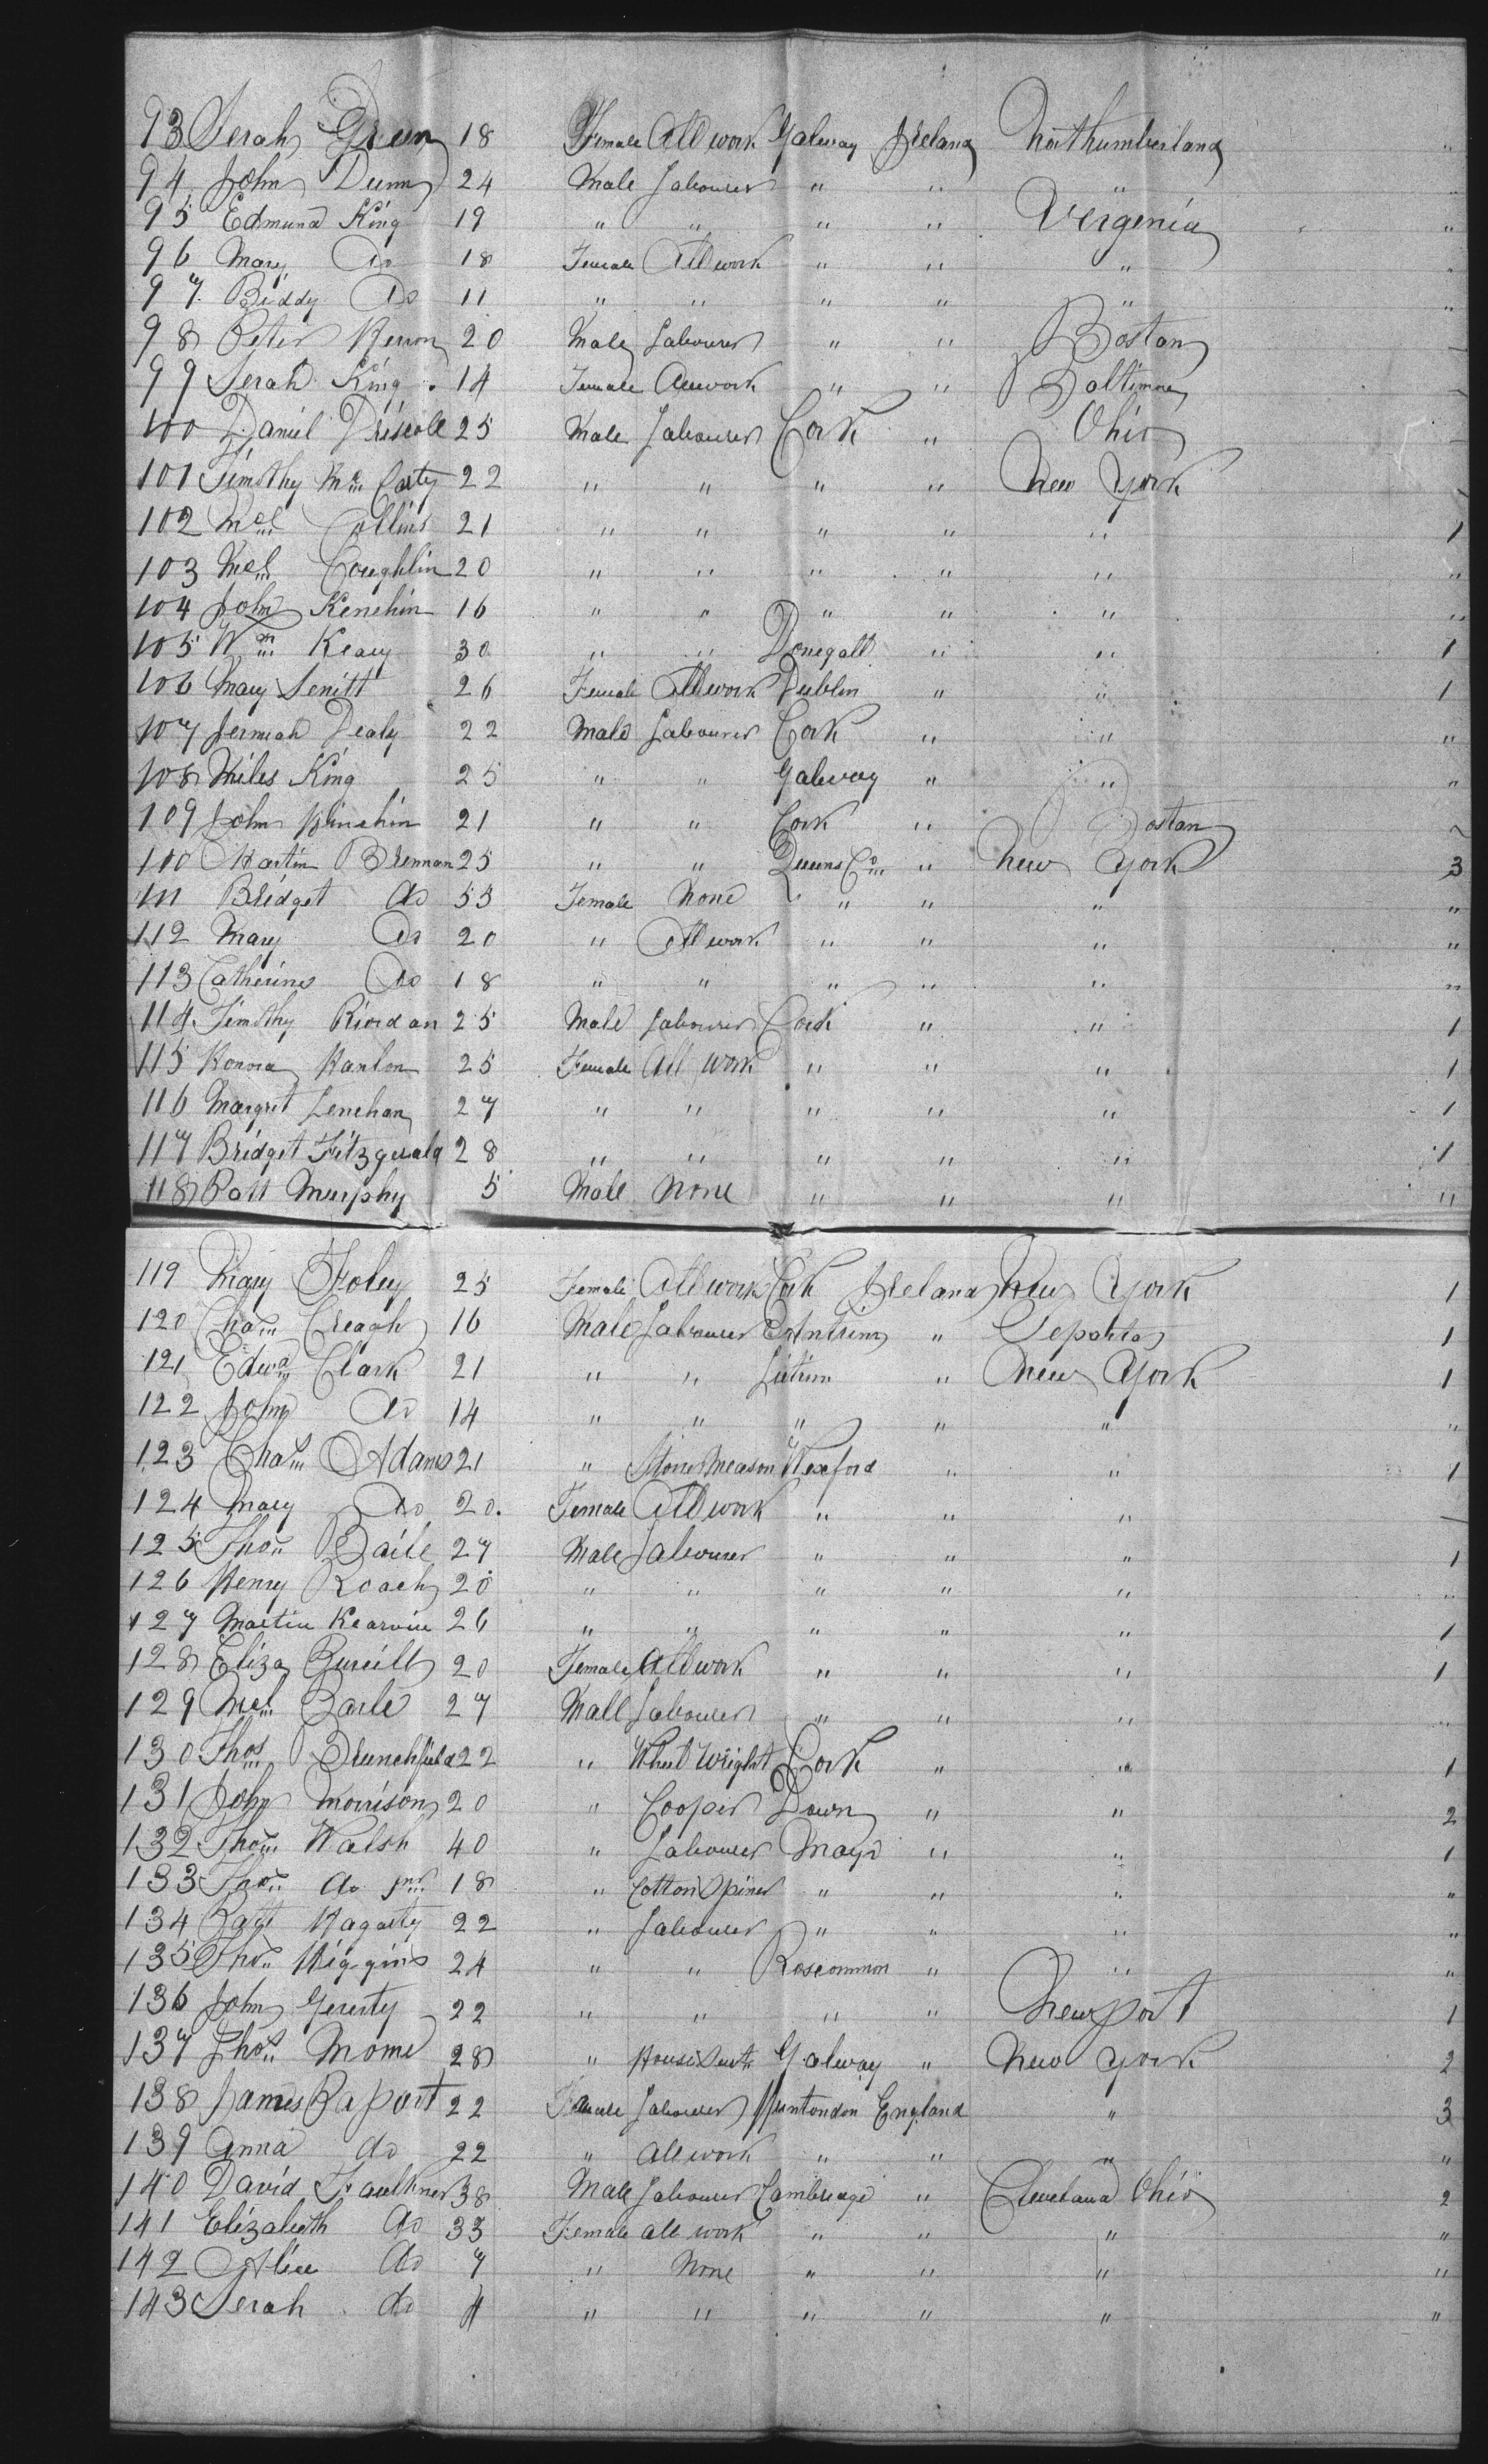 93 Serah Green 18 Female All work Galway Ireland Northumberland "
94 John Dunn 24 Male Labourer " " " "
95 Edmund King 19 " " " " Vergenia "
96 Mary Do 18 Female All work " " " "
97 Biddy Do 11 " " " " " "
98 Peter 20 Male Labourer " " Bostan
99 Serah King 14 Female Allwork " " Baltimore
100 Daniel Driscole 25 Male Labourer Cork " Ohio
101 Timothy Mc Carty 22 " " " " New York
102 Mcl Collins 21 " " " " " 1
103 Mcl Coughlin 20 " " " " " "
104 John Kenehin 16 " " " " " "
105 Wm Keary 30 " " Donegall " " 1
106 Mary Senitt 26 Female Allwork Dublin " " 1
107 Jermiah Dealy 22 Male Labourer Cork " " "
108 Miles King 25 " " Galway " " "
109 John Kinehin 21 " " Cork " Bostan
110 Martin Brennan 25 " " Queens Co " New York 3
111 Bridget do 55 Female None " " " "
112 Mary Do 20 " All work " " " "
113 Catherine Do 18 " " " " " "
114 Timothy Riordan 25 Male Labourer Cork " " 1
115 Honora Hanlon 25 Female All work " " " 1
116 Margret Lenehan 27 " " " " " 1
117 Bridget Fitzgerald 28 " " " " " 1
118 Patt Murphy 5 Male None " " " "
119 Mary Foley 25 Female All work Cork Ireland New York 1
120 Chas Creagh 16 Male Labourer Antrim " 1
121 Edwd Clark 21 " " Litrim " New York 1
122 John Do 14 " " " " " "
123 Chas Adams 21 " Stone Meason Wexford " " 1
124 Mary Do 20. Female All work " " "
125 Thos Baile 27 Male Labourer " " " 1
126 Henry Roach 20 " " " " " "
127 Martin 26 " " " " " 1
128 Eliza 20 Female All work " " " 1
129 Mcl Baile 27 Mall Labourer " " " "
130 Thos Brunchfield 22 " Wheel Wright Cork " " 1
131 John Morrison 20 " Cooper Down " " 2
132 Thos Walsh 40 " Labourer Mayo " " 1
133 Thos do jnr 18 " Cotton Spiner " " " "
134 Patt Hagarty 22 " Labourer " " " "
135 Thos Higgins 24 " " Roscommon " " "
136 John Gererty 22 " " " " Newport 1
137 Thos 28 " Galway " New York 2
138 James Raport 22 Female Labourer Huntondon England " 3
139 Anna do 22 " All work " " " "
140 David Faulkner 38 Male Labourer Cambreage " Cleveland Ohio 2
141 Elizabeth do 33 Female all work " " " "
142 Alice do 7 " None " " " "
143 Serah do 4 " " " " " "